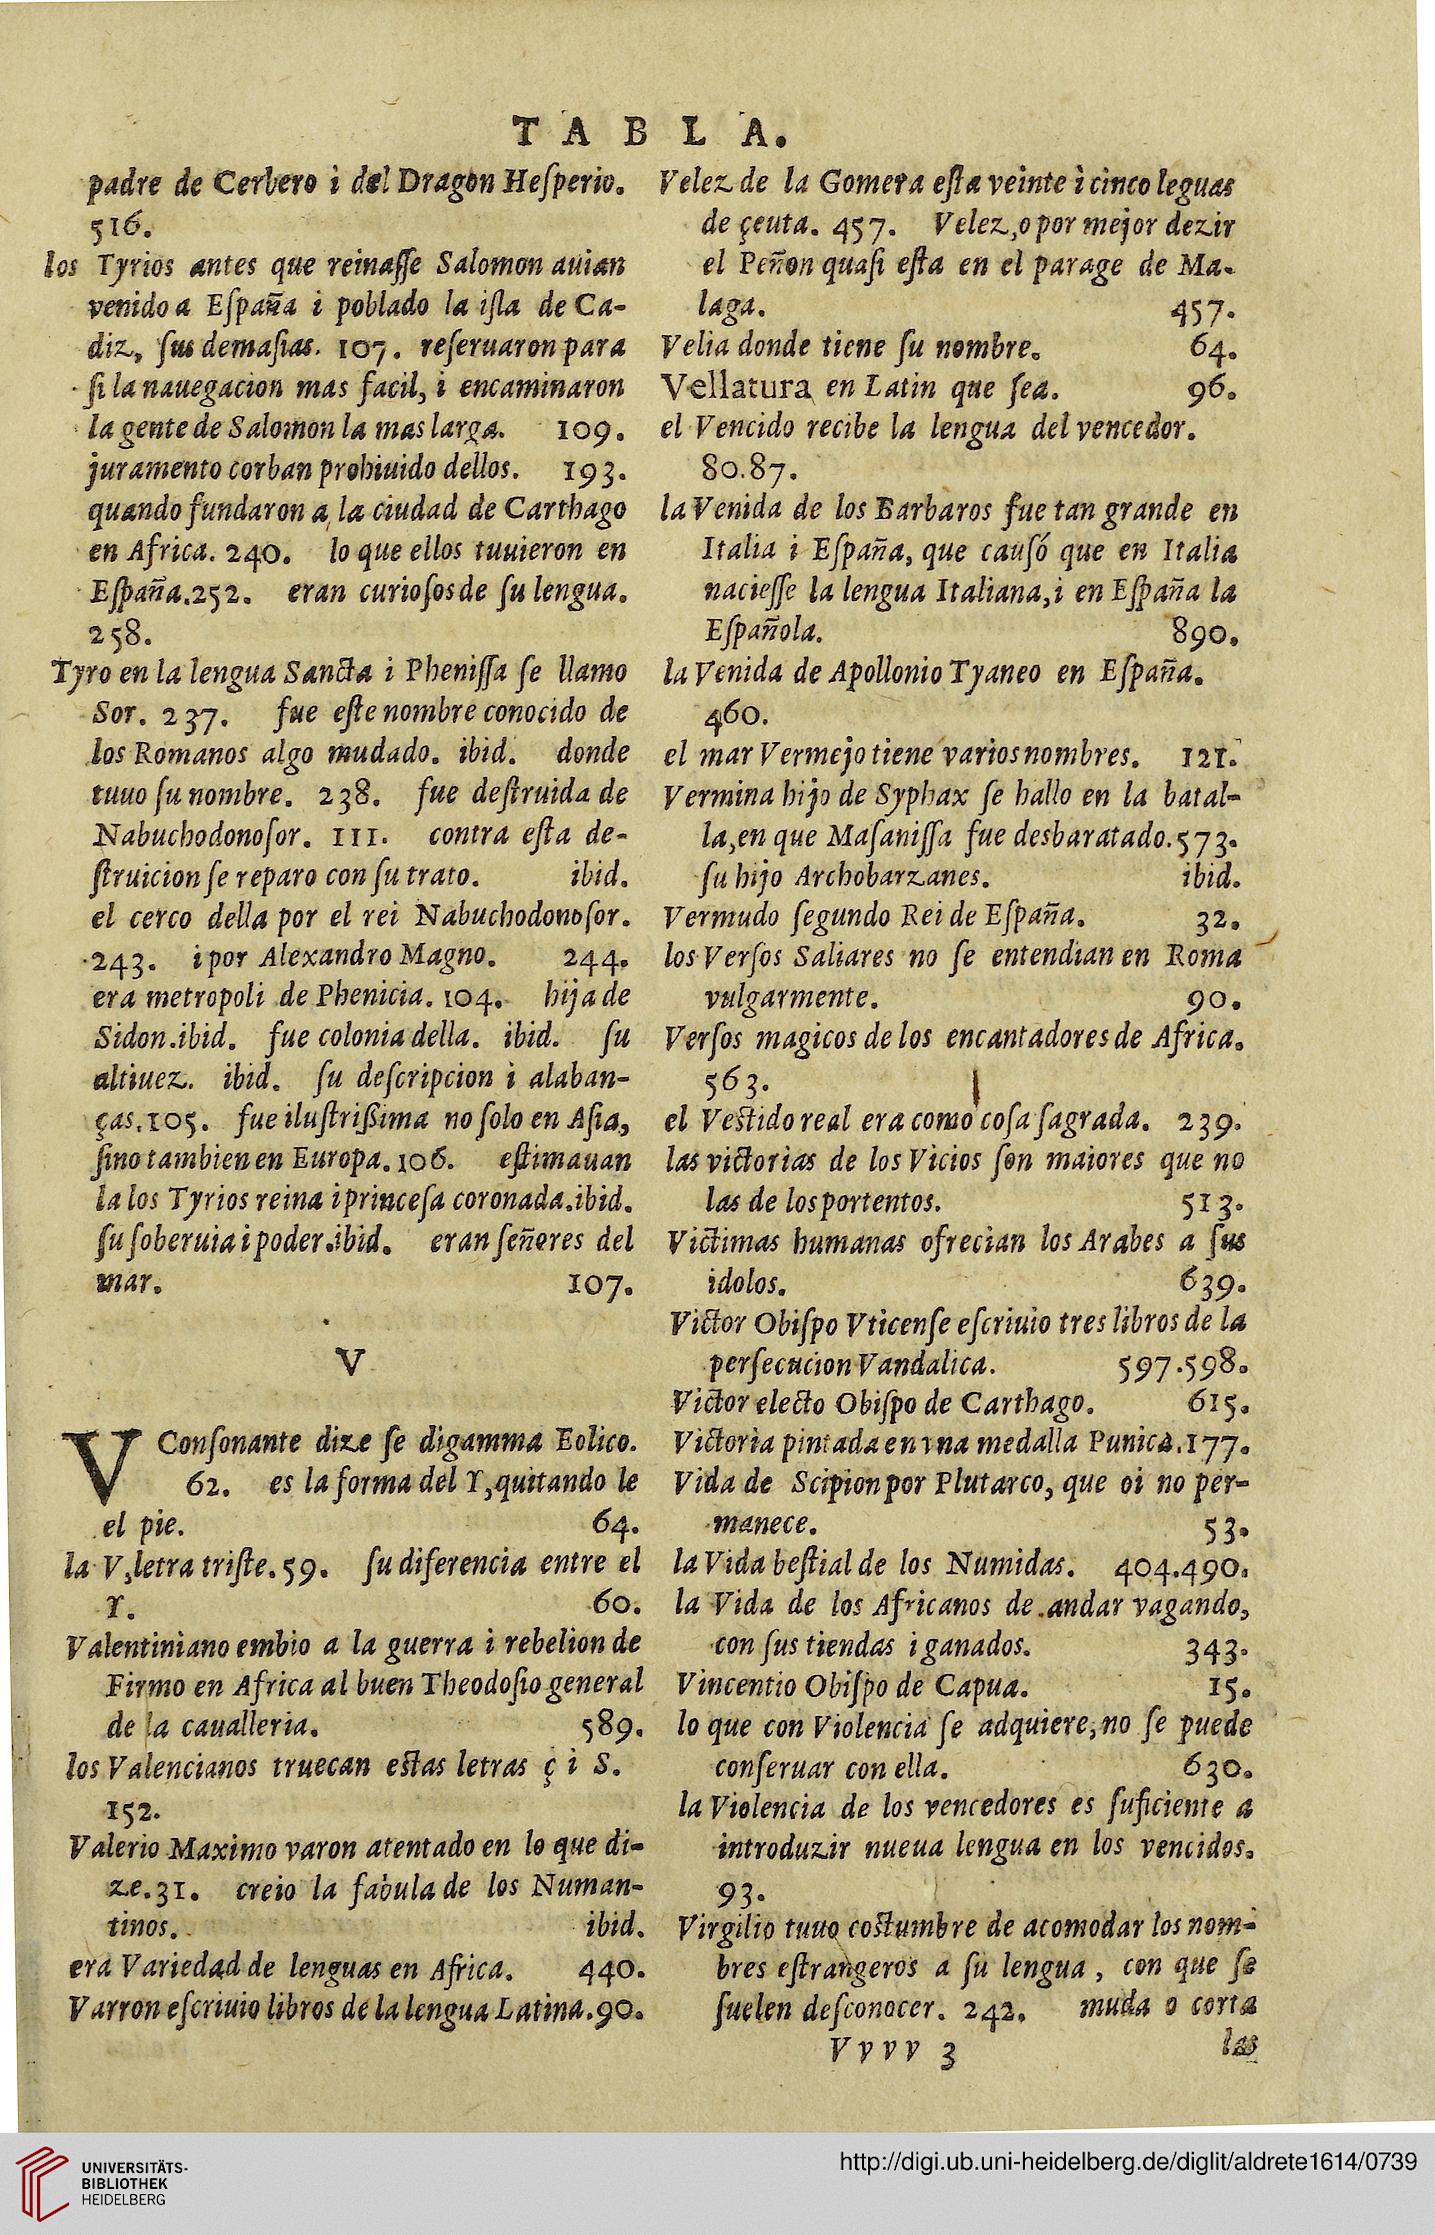 TABLA.
padre de Cerbero i del Dragon Heſperio.
516.
los Tyrios antes que reinaſſe Salomon auian
venido a Eſpaña i poblado la iſla de Ca-
diz, ſus demaſias. 107. reſeruaron para
ſi la nauegacion mas facil, i encaminaron
la gente de Salomon la mas larga. 109.
juramento corban prohiuido dellos. 193.
quando fundaron a la ciudad de Carthago
en Africa. 240. lo que ellos tuuieron en
Eſpaña.252. eran curioſos de ſu lengua.
258.
Tyro en la lengua Sancta i Pheniſſa ſe llamo
Sor. 237. fue eſte nombre conocido de
los Romanos algo mudado. ibid. donde
tuuo ſu nombre. 238. fue deſtruida de
Nabuchodonoſor. 111. contra eſta de-
ſtruicion ſe reparo con ſu trato. ibid.
el cerco della por el rei Nabuchodonoſor.
243. i por Alexandro Magno. 244.
era metropoli de Phenicia. 104. hija de
Sidon.ibid. fue colonia della. ibid. ſu
altiuez. ibid. ſu deſcripcion i alaban-
ças.105. fue iluſtriſsima no ſolo en Aſia,
ſino tambien en Europa.106. eſtimauan
la los Tyrios reina i princeſa coronada.ibid.
ſu ſoberuia i poder.ibid. eran ſeñores del
mar. 107.
V
V Conſonante dize ſe digamma Eolico.
62. es la forma del Y,quitando le
el pie. 64.
la V,letra triſte.59. ſu diferencia entre el
Y. 60.
Valentiniano embio a la guerra i rebelion de
Firmo en Africa al buen Theodoſio general
de la caualleria. 589.
los Valencianos truecan eſtas letras ç i S.
152.
Valerio Maximo varon atentado en lo que di-
ze.31. creio la fabula de los Numan-
tinos. ibid.
era Variedad de lenguas en Africa. 440.
Varron eſcriuio libros de la lengua Latina.90.
Velez de la Gomera eſta veinte i cinco leguas
de çeuta. 457. Velez,o por mejor dezir
el Peñon quaſi eſta en el parage de Ma-
laga. 457.
Velia donde tiene ſu nombre. 64.
Vellatura en Latin que ſea. 96.
el Vencido recibe la lengua del vencedor.
80.87.
la Venida de los Barbaros fue tan grande en
Italia i Eſpaña, que cauſó que en Italia
nacieſſe la lengua Italiana,i en Eſpaña la
Eſpañola. 890.
la Venida de Apollonio Tyaneo en Eſpaña.
460.
el mar Vermejo tiene varios nombres. 121.
Vermina hijo de Syphax ſe hallo en la batal-
la,en que Maſaniſſa fue desbaratado.573.
ſu hijo Archobarzanes. ibid.
Vermudo ſegundo Rei de Eſpaña. 32.
los Verſos Saliares no ſe entendian en Roma
vulgarmente. 90.
Verſos magicos de los encantadores de Africa.
563.
el Veſtido real era como coſa ſagrada. 239.
las victorias de los Vicios ſon maiores que no
las de los portentos. 513.
Victimas humanas ofrecian los Arabes a ſus
idolos. 639.
Victor Obiſpo Vticenſe eſcriuio tres libros de la
perſecucion Vandalica. 597.598.
Victor electo Obiſpo de Carthago. 615.
Victoria pintada en vna medalla Punica.177.
Vida de Scipion por Plutarco, que oi no per-
manece. 53.
la Vida beſtial de los Numidas. 404.490.
la Vida de los Africanos de andar vagando,
con ſus tiendas i ganados. 343.
Vincentio Obiſpo de Capua. 15.
lo que con Violencia ſe adquiere,no ſe puede
conſeruar con ella. 630.
la Violencia de los vencedores es ſuficiente a
introduzir nueua lengua en los vencidos.
93.
Virgilio tuuo coſtumbre de acomodar los nom-
bres eſtrangeros a ſu lengua, con que ſe
ſuelen deſconocer. 242. muda o corta
Vvvv 3 las
UNIVERSITÄTS-
BIBLIOTHEK
HEIDELBERG
http://digi.ub.uni-heidelberg.de/diglit/aldrete1614/0739